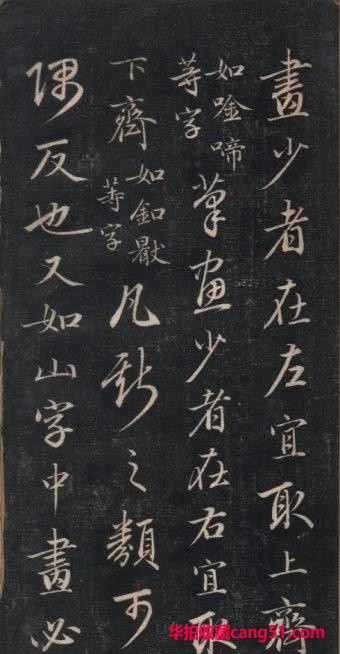 畫少者在左宜取上齊
如唫啼
等字
筆畫少者在右宜取
下齊
如釦
等字
凡斯之類可
隅反也又如山字中畫必
华拍收藏cang51.com